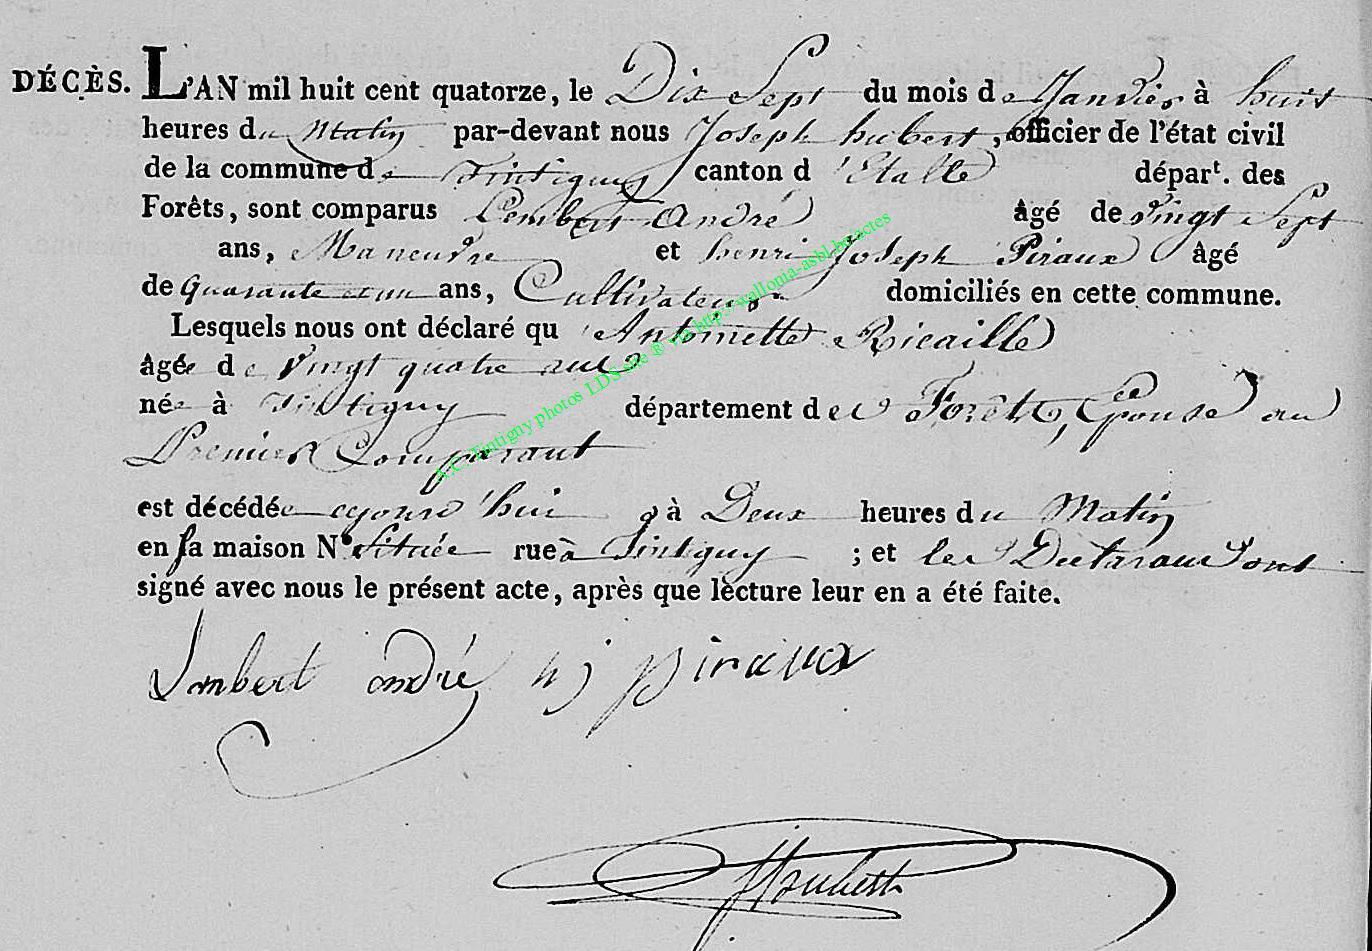 DÉCÈS. L'AN mil huit cent quatorze, le Dix Sept du mois de Janvier à huit
heures du Matin par-devant nous Joseph hubert, officier de l'état civil
de la commune de Tintigny canton d'Etalle départ. des
Forêts, sont comparus Lambert André âgé de Vingt Sept
ans, Maneuvre et henri Joseph Piraux âgé
de Quarante et un ans, Cultivateur domiciliés en cette commune.
Lesquels nous ont déclaré qu'Antoinette Ricaille
âgée de Vingt quatre ans
née à Tintigny département des Forêts, Epouse au
Premier Comparant
est décédée cejourd'hui à Deux heures du Matin
en sa maison N° Située rue à Tintigny ; et les Declarans Sont
signé avec nous le présent acte, après que lecture leur en a été faite.
Lambert andré h j piraux
JHubert
A.C. Tintigny photos LDS site ® via http://wallonia-asbl.be/actes